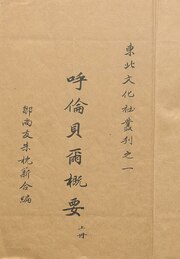 東北文化社叢刊之一
呼倫貝爾概要
上册
鄒尚友朱枕薪合編